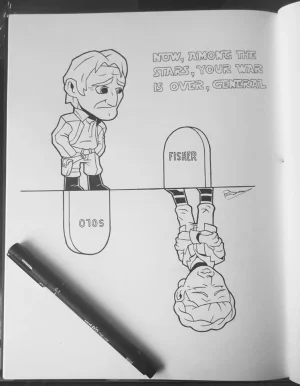 NOW, AMONG THE
STARS, YOUR WAR
IS OVER, GENERAL
FISHER
SOLO